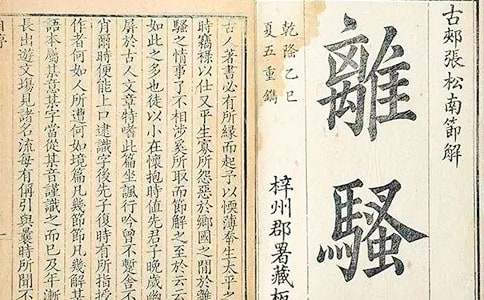 古郟張松南節解
離騷
乾隆乙巳
夏五重鐫
梓州郡署藏板
古 著書必有所緣而起予以 薄忝生太平之
時竊祿以仕又平生寡所怨惡於鄉國之間於離
騷之情事了不相涉奚所取而節解之至於云云
如此之多也徒以小在懷抱時值先君子晚歲幽
屏於古人文章特嗜此篇坐諷行吟曾不蹔舍不
肖爾時便能上口逮識字後先子復時有所指授
作者何如人所遭何如境篇凡幾節節凡幾解某
語本屬某意某字當從某音謹識之而已及年漸
長出遊文塲見諸名流每有偁引與曩時所聞不